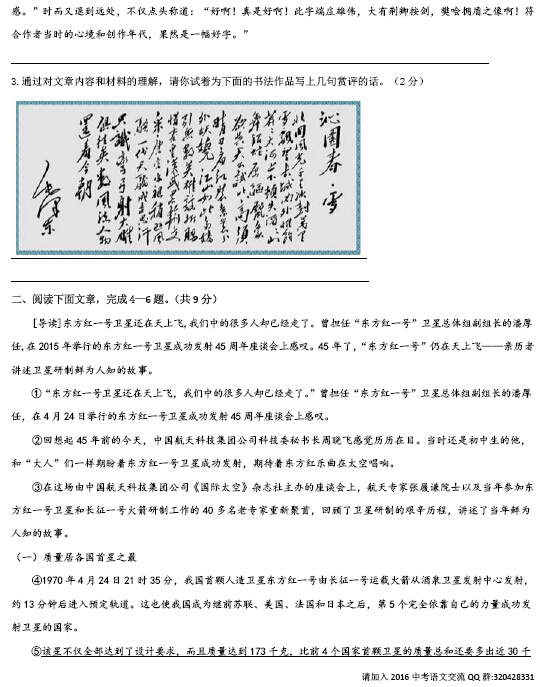 感。”时而又退到远处，不仅点头称道：“好啊！真是好啊！此字端庄雄伟，大有荆卿按剑，樊哙拥盾之像啊！符
合作者当时的心境和创作年代，果然是一幅好字。”
3.通过对文章内容和材料的理解，请你试着为下面的书法作品写上几句赏评的话。（2 分）
沁园春·雪
北国风光千里冰封万里
还看今朝
毛泽东
二、阅读下面文章，完成 4—6 题。（共 9 分）
[导读]东方红一号卫星还在天上飞,我们中的很多人却已经走了。曾担任“东方红一号”卫星总体组副组长的潘厚
任,在 2015 年举行的东方红一号卫星成功发射 45 周年座谈会上感叹。45 年了，“东方红一号”仍在天上飞——亲历者
讲述卫星研制鲜为人知的故事。
①“东方红一号卫星还在天上飞，我们中的很多人却已经走了。”曾担任“东方红一号”卫星总体组副组长的潘厚
任，在 4 月 24 日举行的东方红一号卫星成功发射 45 周年座谈会上感叹。
②回想起 45 年前的今天，中国航天科技集团公司科技委秘书长周晓飞感觉历历在目。当时还是初中生的他，
和“大人”们一样期盼着东方红一号卫星成功发射，期待着东方红乐曲在太空唱响。
③在这场由中国航天科技集团公司《国际太空》杂志社主办的座谈会上，航天专家张履谦院士以及当年参加东
方红一号卫星和长征一号火箭研制工作的 40 多名老专家重新聚首，回顾了卫星研制的艰辛历程，讲述了当年鲜为
人知的故事。
（一）质量居各国首星之最
④1970 年 4 月 24 日 21 时 35 分，我国首颗人造卫星东方红一号由长征一号运载火箭从酒泉卫星发射中心发射，
约 13 分钟后进入预定轨道。这也使我国成为继前苏联、美国、法国和日本之后，第 5 个完全依靠自己的力量成功发
射卫星的国家。
⑤该星不仅全部达到了设计要求，而且质量达到 173 千克，比前 4 个国家首颗卫星的质量总和还要多出近 30 千
请加入 2016 中考语文交流 QQ 群:320428331